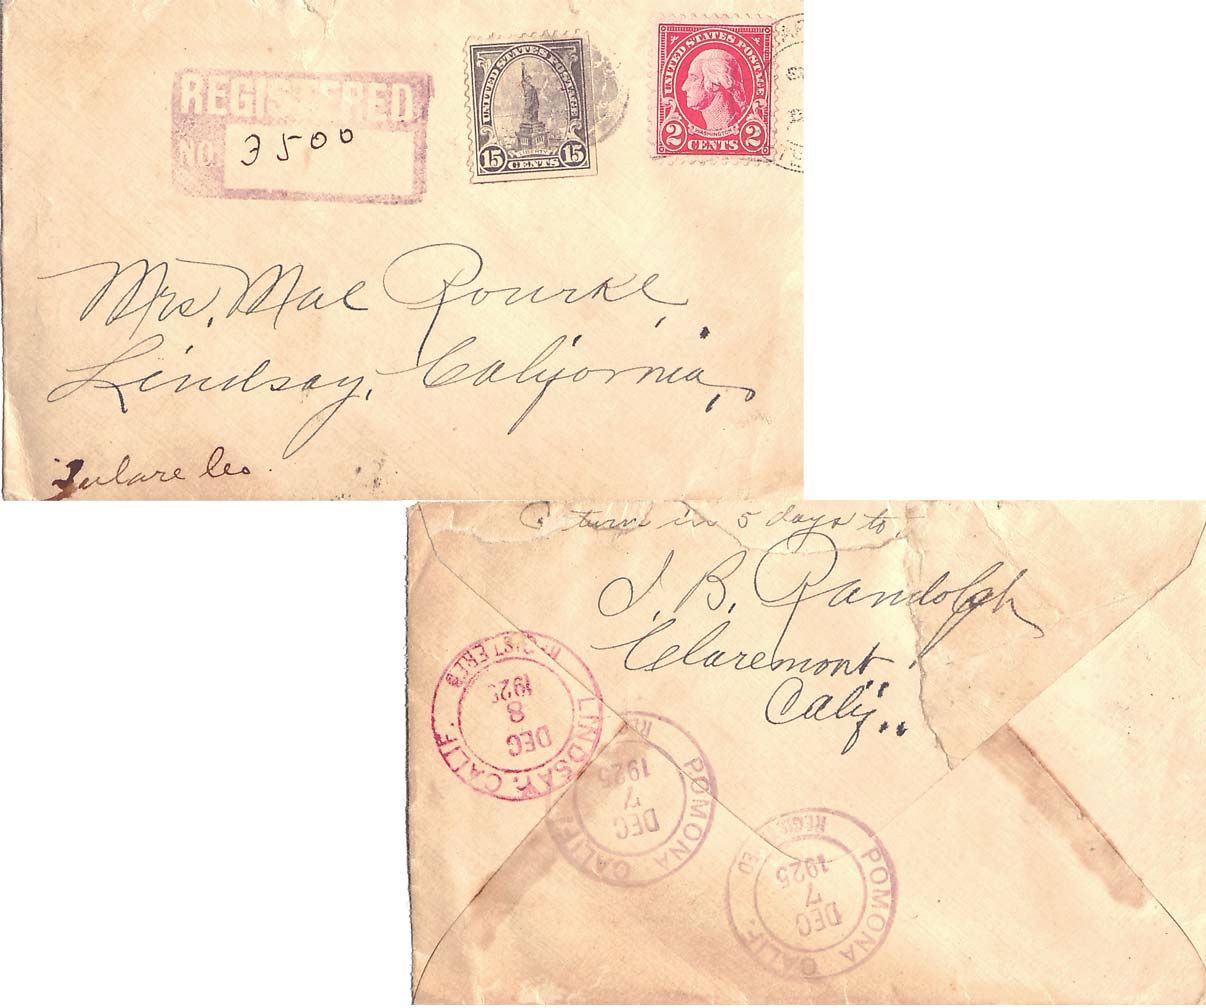 REGISTERED
NO. 3500
UNITED STATES POSTAGE
LIBERTY
15 CENTS 15
UNITED STATES POSTAGE
WASHINGTON
2 CENTS 2
Mrs. Mae Rourke,
Lindsay, California,
Tulare Co.
Return in 5 days to,
J. B. Randolph
Claremont,
Calif.
LINDSAY, CALIF.
REGISTERED
DEC
8
1925
POMONA CALIF.
DEC
7
1925
POMONA CALIF.
REGISTERED
DEC
7
1925